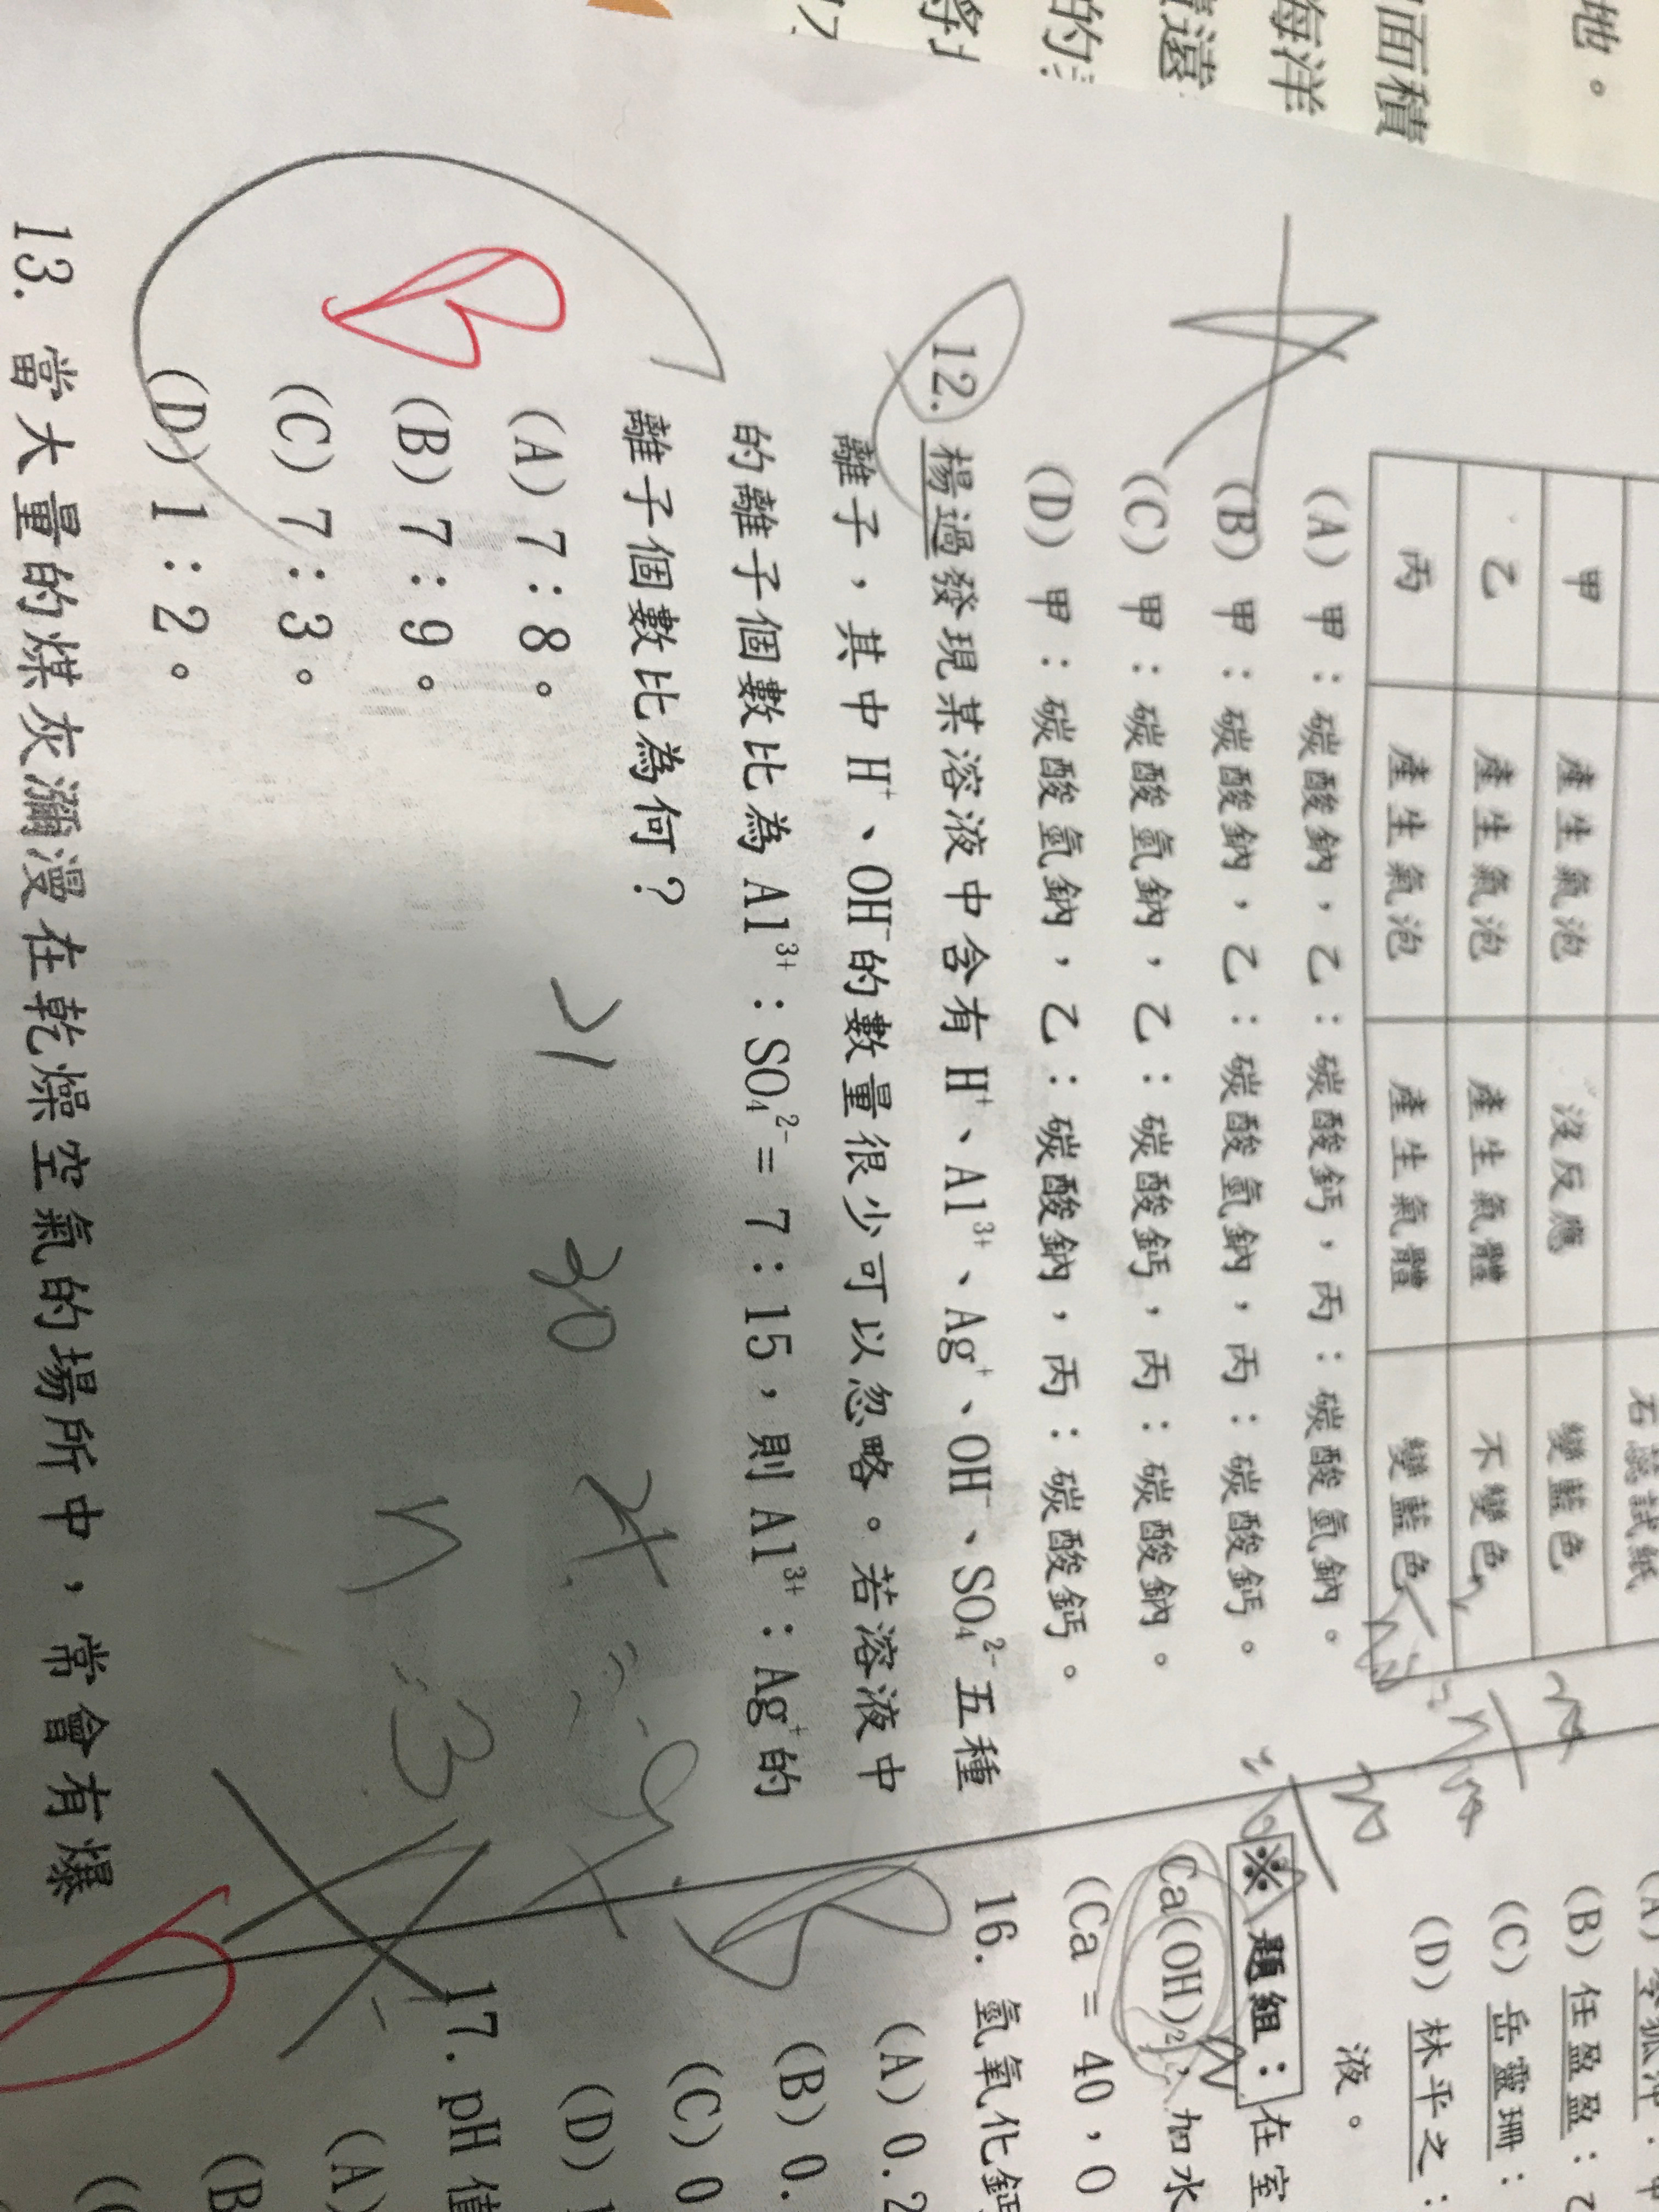 地。
面積
海洋
的
石蕊試紙
甲 產生氣泡 沒反應 變藍色
乙 產生氣泡 產生氣體 不變色
丙 產生氣泡 產生氣體 變藍色
(A) 甲：碳酸鈉，乙：碳酸鈣，丙：碳酸氫鈉。
(B) 甲：碳酸鈉，乙：碳酸氫鈉，丙：碳酸鈣。
(C) 甲：碳酸氫鈉，乙：碳酸鈣，丙：碳酸鈉。
(D) 甲：碳酸氫鈉，乙：碳酸鈉，丙：碳酸鈣。
12. 楊過發現某溶液中含有 H⁺、Al³⁺、Ag⁺、OH⁻、SO₄²⁻五種
離子，其中 H⁺、OH⁻的數量很少可以忽略。若溶液中
的離子個數比為 Al³⁺：SO₄²⁻= 7：15，則 Al³⁺：Ag⁺的
離子個數比為何？
(A) 7：8。
(B) 7：9。
(C) 7：3。
(D) 1：2。
21 30
13. 當大量的煤灰瀰漫在乾燥空氣的場所中，常會有爆
(B) 任盈盈：
(C) 岳靈珊：
(D) 林平之：
液。
※ 題組：在室
Ca(OH)₂，加水
(Ca = 40，O
16. 氫氧化鈣
(A) 0.2
(B) 0.
(C) 0
(D)
17. pH 值
(A)
(B